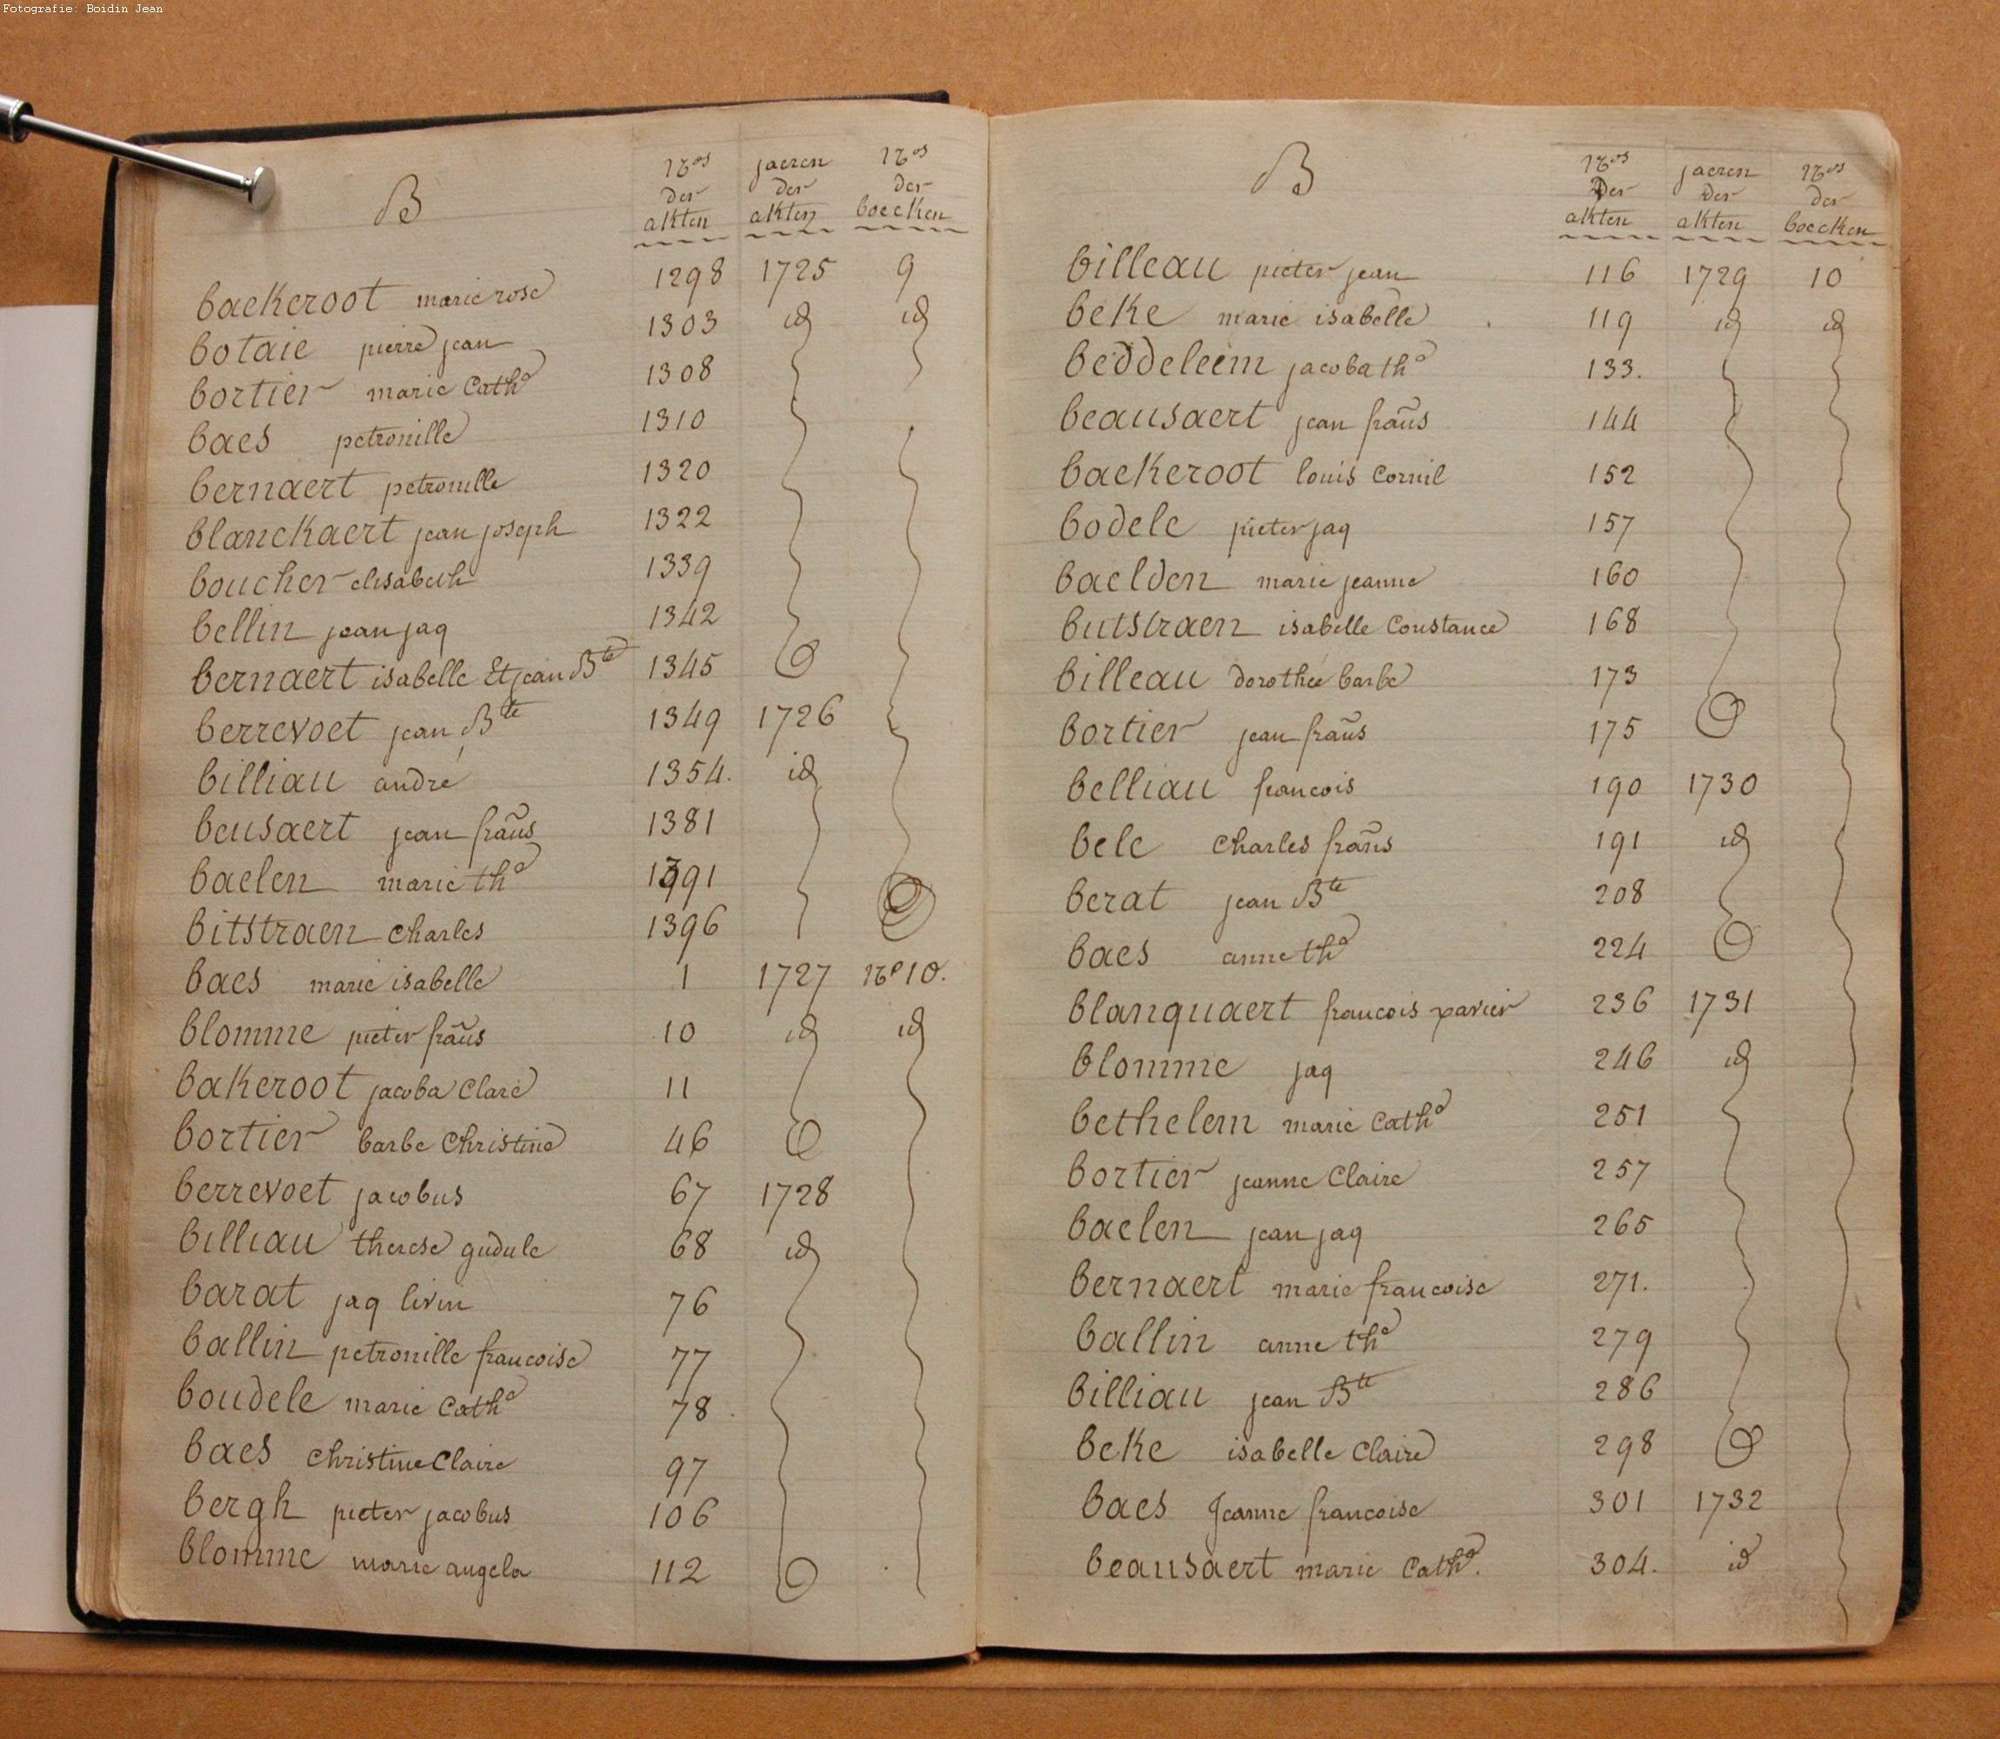 Fotografie: Boidin Jean
B
Nos der akten
jaeren der akten
Nos der boecken
baekeroot marie rose 1298 1725 9
botaie pierre jean 1303 id id
bortier marie Cathe 1308
baes petronille 1310
bernaert petronille 1320
blanckaert jean joseph 1322
boucher elisabeth 1339
bellin jean jaq 1342
bernaert isabelle Et jean Bte 1345
berrevoet jean Bte 1349 1726
billiau andré 1354. id
beusaert jean frañs 1381
baelen marie the 1391
bitstraen charles 1396
baes marie isabelle 1 1727 No 10.
blomme pieter frañs 10 id id
bakeroot jacoba Clare 11
bortier barbe Christine 46
berrevoet jacobus 67 1728
billiau therese gudule 68 id
barat jaq livin 76
ballin petronille francoise 77
boudele marie Cathe 78
baes christine Claire 97
bergh pieter jacobus 106
blomme marie angela 112
B
Nos der akten
jaeren der akten
Nos der boecken
billeau pieter jean 116 1729 10
beke marie isabelle 119 id id
beddeleem jacoba the 133.
beausaert jean frañs 144
baekeroot louis Cornil 152
bodele pieter jaq 157
baelden marie jeanne 160
butstraen isabelle Constance 168
billeau dorothée barbe 173
bortier jean frañs 175
belliau francois 190 1730
bele Charles frañs 191 id
berat jean Bte 208
baes anne the 224
blanquaert francois xavier 236 1731
blomme jaq 246 id
bethelem marie Cathe 251
bortier jeanne Claire 257
baelen jean jaq 265
bernaert marie francoise 271.
ballin anne the 279
billiau jean Bte 286
beke isabelle Claire 298
baes Jeanne francoise 301 1732
beausaert marie Cathe. 304. id